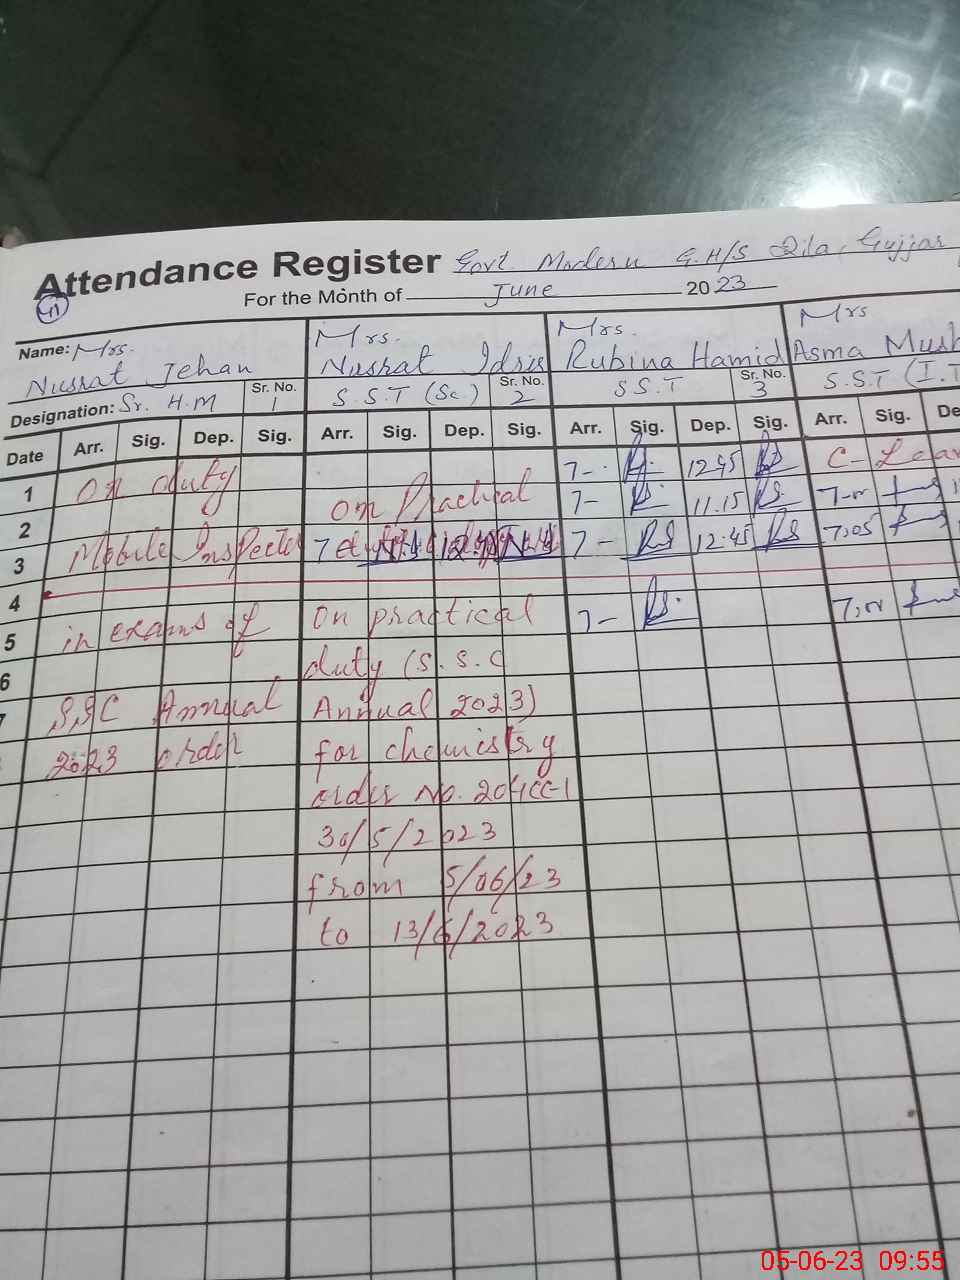 Attendance Register Govt. Modern G.H/S Qila, Gujjar
41
For the Month of June 2023
Name: Mrs. Nusrat Jehan
Mrs. Nusrat Idris
Mrs. Rubina Hamid
Mrs Asma Mush
Designation: Sr. H.M Sr. No. 1
S.S.T (Sc.) Sr. No. 2
S S.T Sr. No. 3
S.S.T (I.T
Date Arr. Sig. Dep. Sig. Arr. Sig. Dep. Sig. Arr. Sig. Dep. Sig. Arr. Sig. De
1 on duty 7-. 12 45 C-Lea
2 on Practical 7- 11.15
3 Mobile Inspector 7 7- 12.45 7,05
4
5 in exams of on practical 7-
6 duty (S.S.C
7 S,SC Annual Annual 2023)
2023 order for chemistry
order No. 204CC-1
30/5/2023
from 5/06/23
to 13/6/2023
05-06-23 09:55